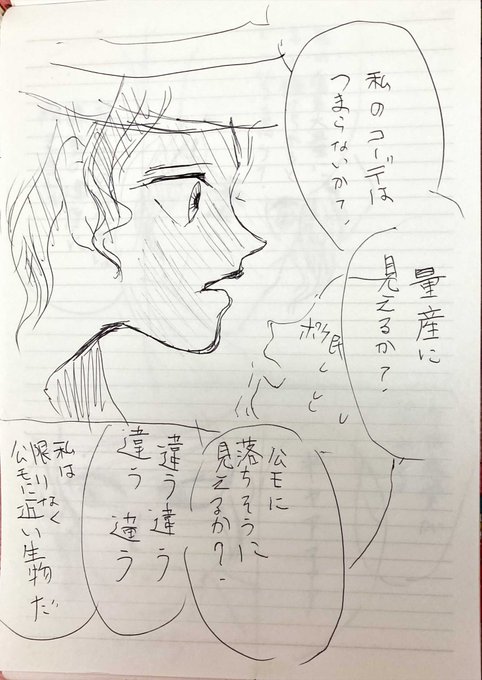 私のコーデは
つまらないか？
量産に
見えるか？
公モに
落ちそうに
見えるか？
違う違う
違う違う
私は
限りなく
公モに近い生物だ